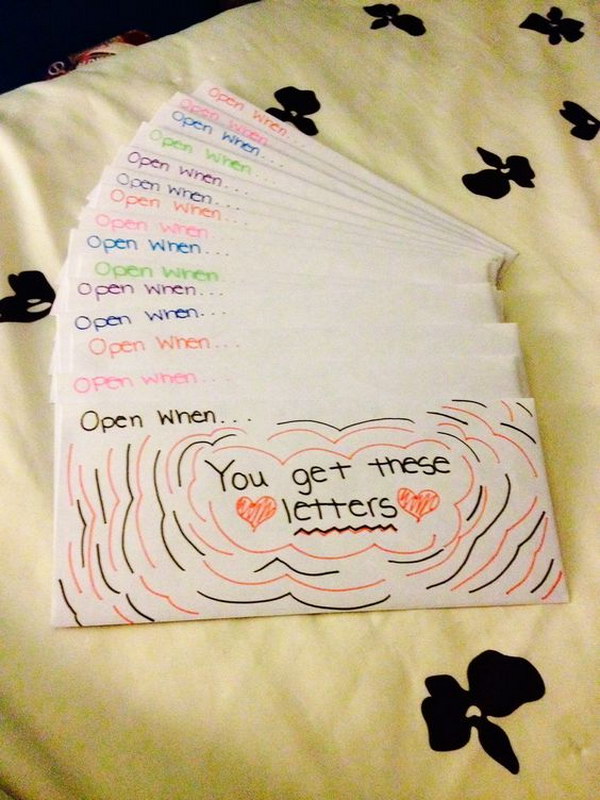 Open When...
Open When
Open When...
Open When...
Open When...
Open When...
Open When...
Open When
Open When...
Open When
Open When...
Open When...
Open When...
Open When...
Open When...
You get these
letters